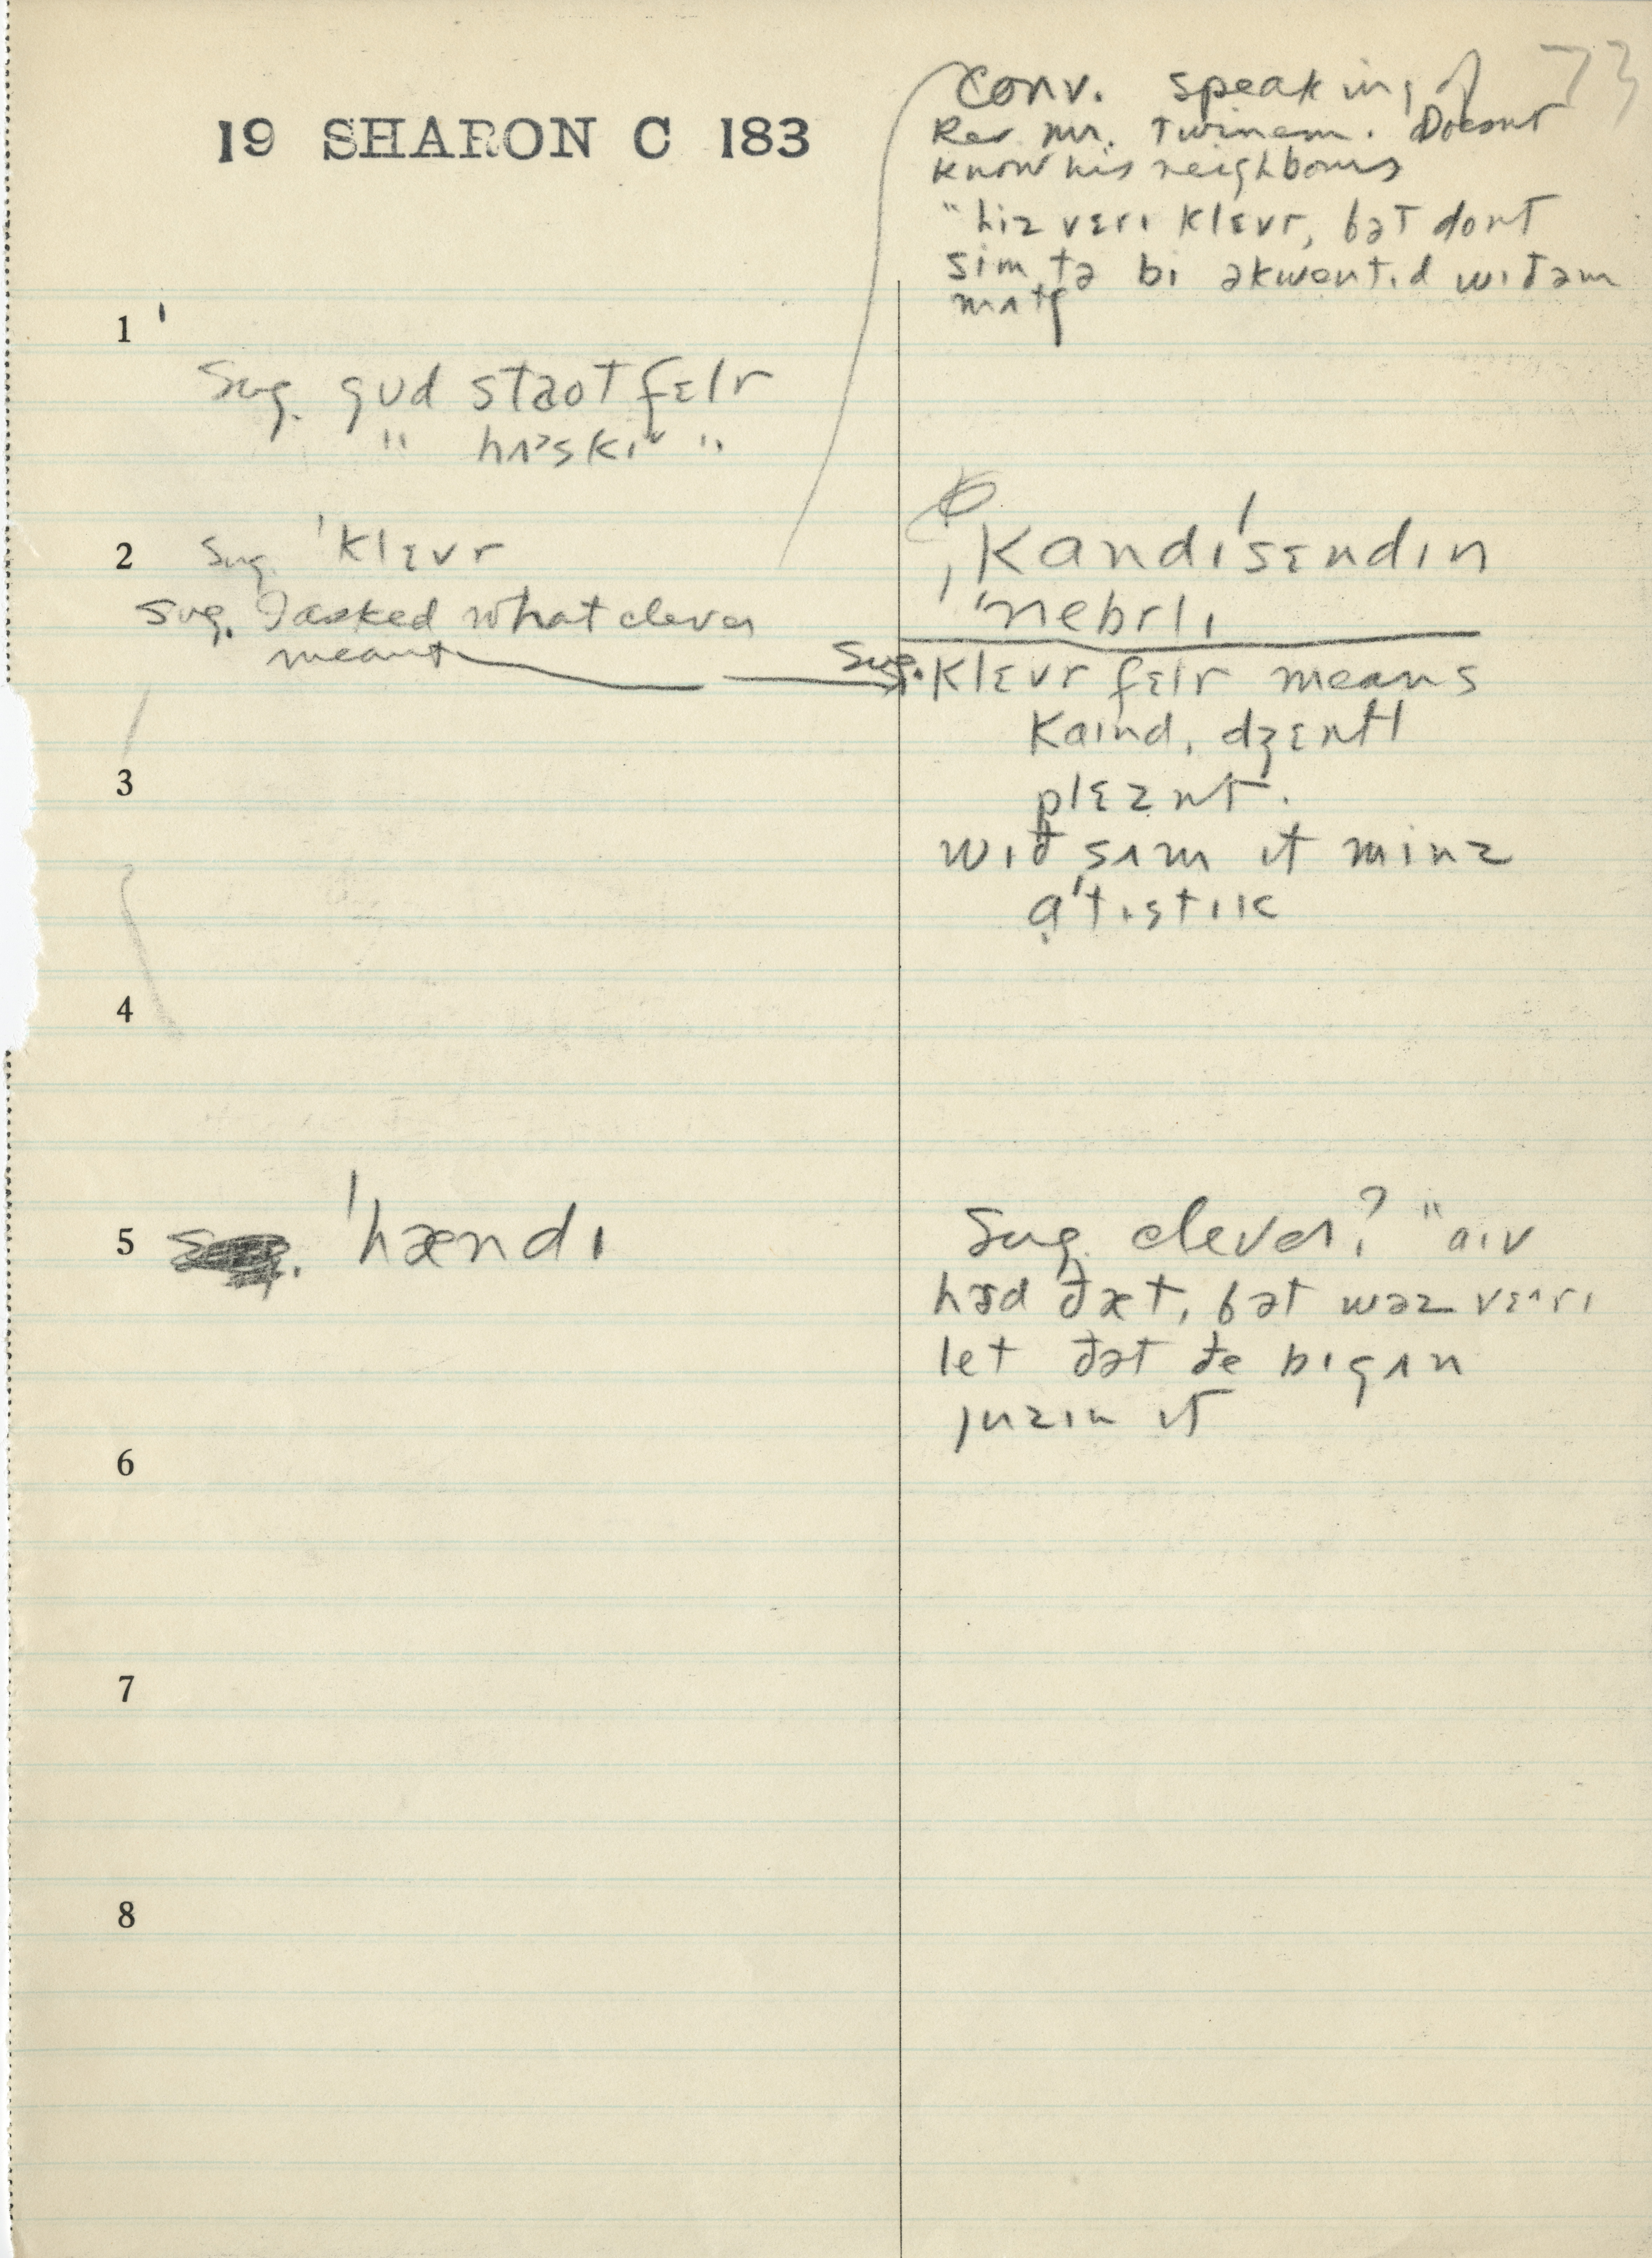 73
19 SHARON C 183
Conv. speaking of
Rev Mr. Twinem. Doesnt
know his neighbours
"hiz vɛrɪ klɛvr, bət dont
sim tə bɪ əkwentɪd wɪðəm
mʌtʃ
1
Sug. gud staot fɛlr
" hʌskɪ "
2 Sug. 'klɛvr
Sug. I asked what clever
meant
ˌkandɪˈsɛndɪn
'nebrlɪ
Sug. klɛvr fɛlr means
kaɪnd, dʒɛntl
plɛznt.
wɪð sʌm ɪt minz
a'tɪstɪk
3
4
5 'hændɪ
Sug. clever? "aɪv
hɜd ðæt, bət wəz vɛʌrɪ
let ðət ðe bɪgʌn
juzɪn ɪt
6
7
8